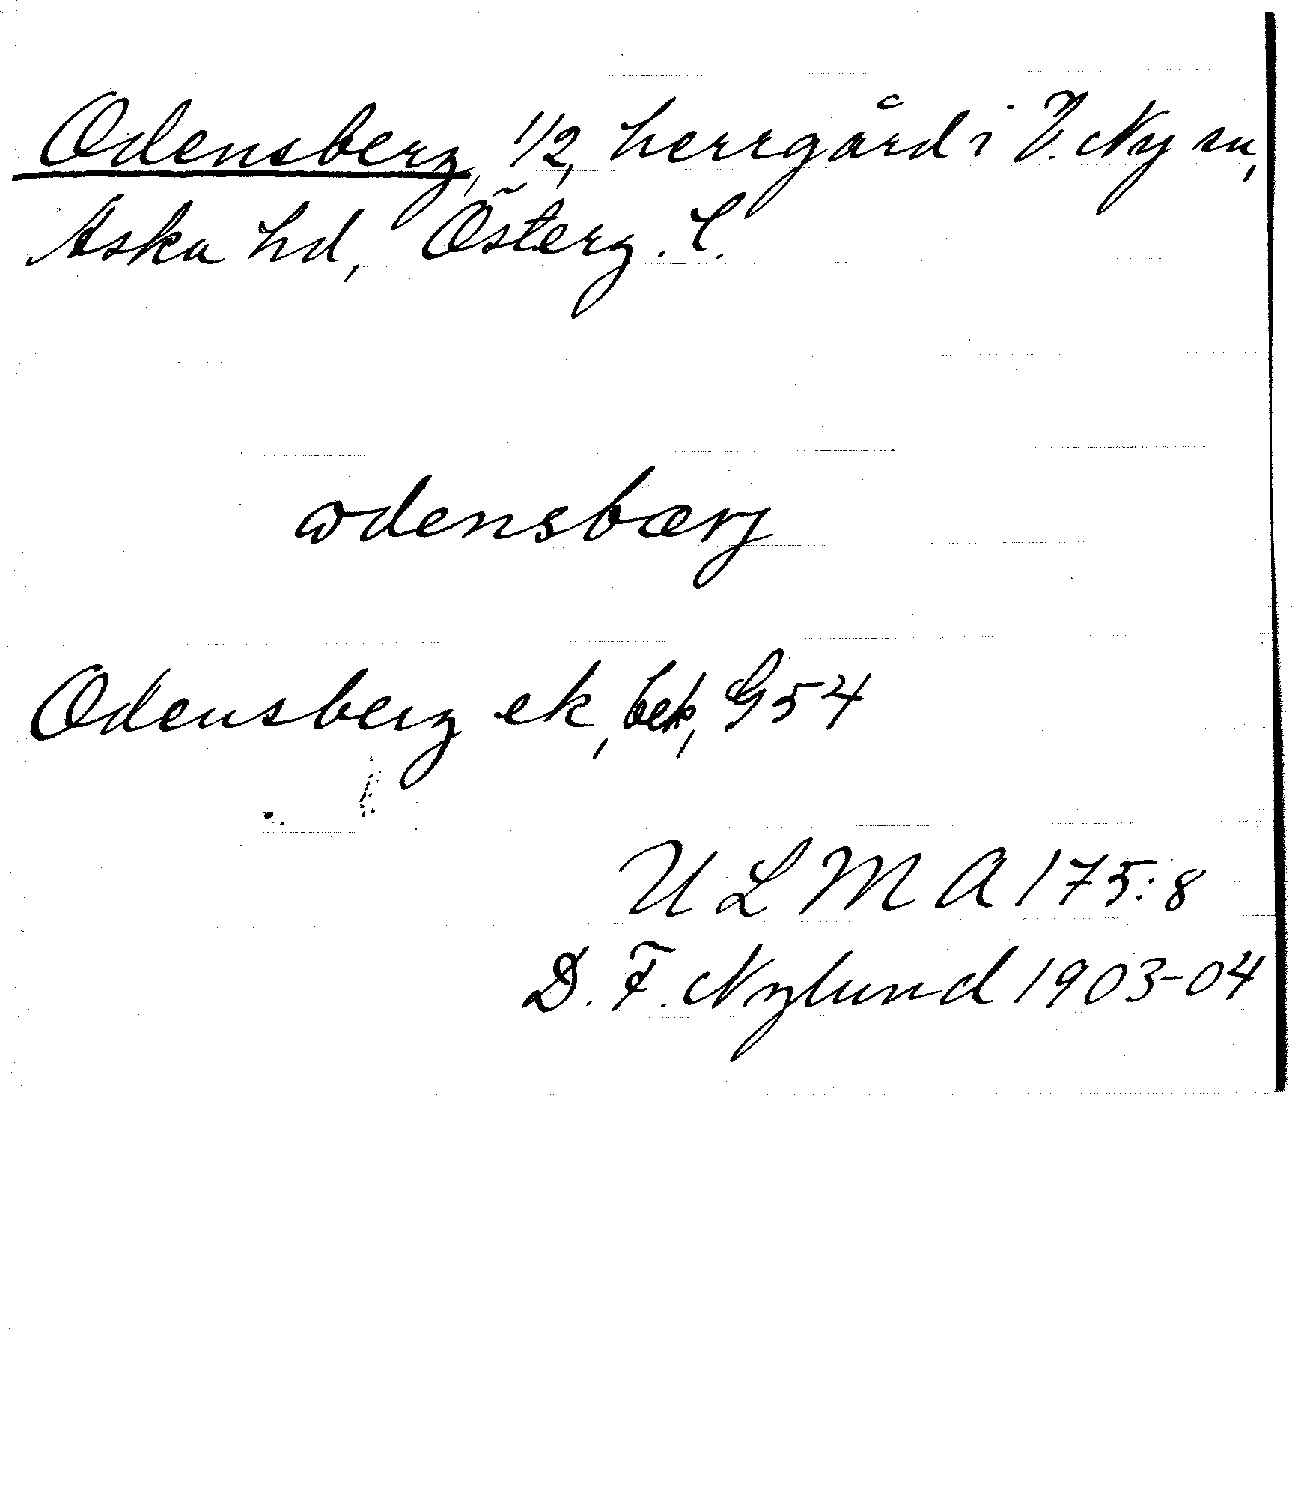 Odensberg, 1/2, herrgård i V. Ny sn,
Aska hd, Österg. l.
odensbærj
Odensberg ek, bek, G54
ULMA 175:8
D. F. Nylund 1903-04